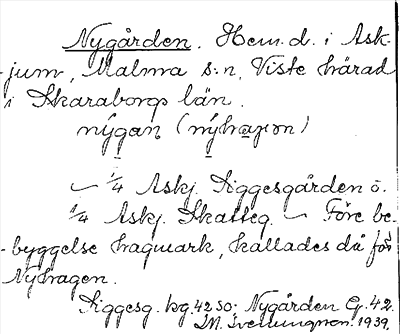 Nygården. Hem.d. i Ask-
jum, Malma s:n, Viste härad
i Skaraborgs län.
nýgan (nýhaɟen)
– 1/4 Askj. Siggesgården o.
1/4 Askj. Skatteg. – Före be-
byggelse hagmark, kallades då för
Nyhagen.
Siggesg. kg. 42 SO; Nygården G. 42.
1939.